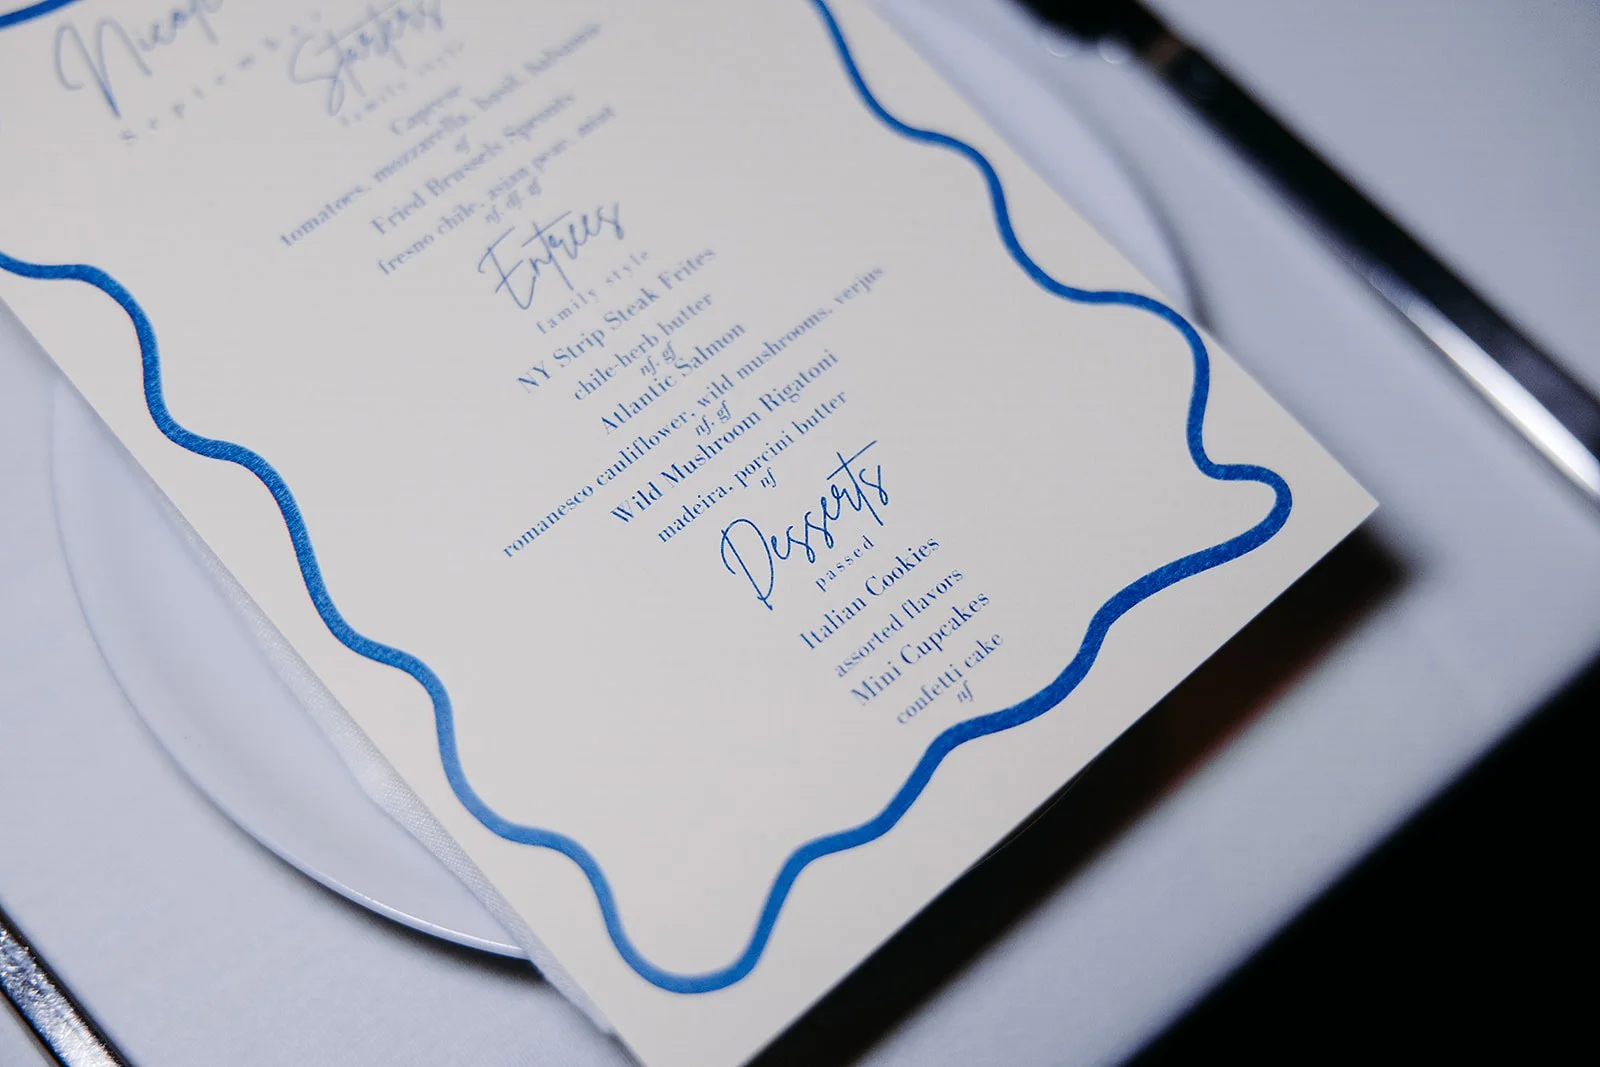 Starters
family style
Caprese
tomatoes, mozzarella, basil, balsamic
gf
Fried Brussels Sprouts
fresno chile, asian pear, mint
nf, df, gf
Entrees
family style
NY Strip Steak Frites
chile-herb butter
nf, gf
Atlantic Salmon
romanesco cauliflower, wild mushrooms, verjus
nf, gf
Wild Mushroom Rigatoni
madeira, porcini butter
nf
Desserts
passed
Italian Cookies
assorted flavors
Mini Cupcakes
confetti cake
nf